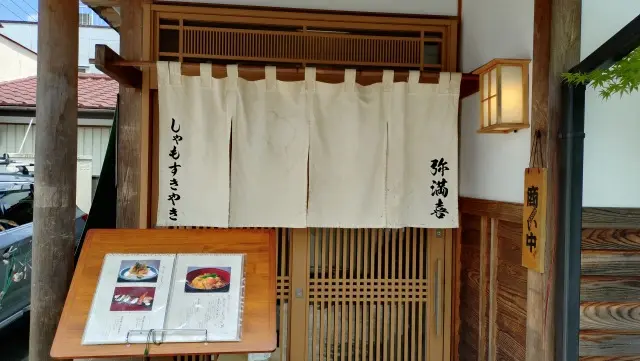 しゃもすきやき
弥満喜
商い中